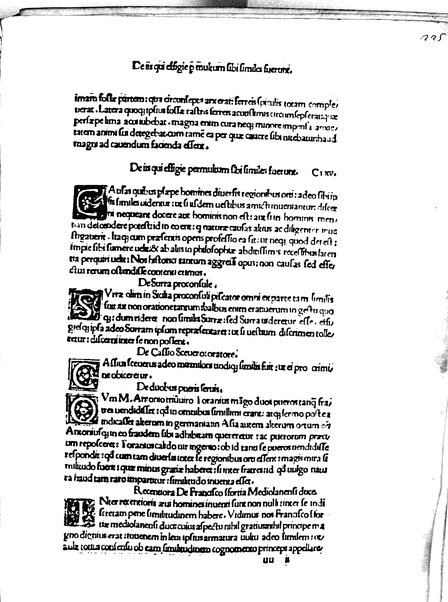 225
De iis qui effigie p̄ multum sibi similes fuerunt.
imam fossæ partem: qtra circunsepta arx erat: ferreis spiculis totam comple/
uerat. Latera quoq; ipsius fossæ rastris ferreis acutissimis circumsepserat: quæ
persæpe lima acui iubebat. magna enim cura neq; minore impensa
tatem animi sui detegebat: cum tamē ea per quæ cauere sibi nitebatur haud
magni ad cauendum facienda essent.
De iis qui effigie permultum sibi similes fuerunt. C. xv.
CAusas quibus plæpe homines diuersis regionibus orti: adeo sibi in
sis similes uidentur: ut si iisdem uestibus amicti inueniantur: discer
ni nequeant docere aut hominis non est: aut si in hominis men/
tum descendere potest: id
stigauerit. Itaq; cum præsentis operis professio ea sit: ut neq; quod deest:
impie sibi sumere uelit: & ab aliis in philosophiæ abdissimis recessibus laten
tia perquiri uelit: Nos historici tantum aggressi opus: non causas sed effe/
ctus rerum ostendisse contenti erimus.
De Surra proconsule.
SVrra olim in Sicilia proconsuli piscator omni ex parte tam similis
fuit: ut non orationetantum: balbus enim eratuerum in gestu quo
q; dum rideret non similis Surræ: sed Surra uideretur esse.
gies q; ipsa adeo Surram ipsum repræsentaret: ut si uestium discrimen tolle/
retur: discerni inter se non possent.
De Cassio Sceuero: oratore.
CAssius sceuerus adeo mirmilloni undiq; similis fuit: ut ei pro crimi/
ne obiiceretur.
De duobus pueris seruis.
CVm M. Antonio triūuiro Toranius māgo duos pueros tanq̄ fra/
tres uendidisset: q̄d in omnibus simillimi erant: atq; sermo postea
indicasset alterum in germania: in Asia autem alterum ortum
Antoniusq; in eo fraudem sibi adhibitam quereretur: ac puerorum præcii
um reposceret: Toranius callido uir ingenio: ob id tanti se pueros uendidisse
respondit: q̄d cum tam diuersis inter se regionibus orti essent: magis mira si
militudo fuerit: quæ minus gratiæ haberet: si inter fratres id: q̄d uulgo natu
ra haud tam raro impartitur: similitudo inuenta esset.
Recentiora De Francisco sfortia Mediolanensi duce.
INter recentioris æui homines inuenti sunt non nulli: inter se indi
scretam pene similitudinem habere. Vidimus nos Francisco sfor
tiæ mediolanensi duci: cuius aspectu nihil gratius: nihil principe ma/
gno dignius erat: itionem in leui ipsius armatura uultu adeo similem: to/
taq; totius consensu ob eam similitudinem cognomento princeps appellare/
uu ii